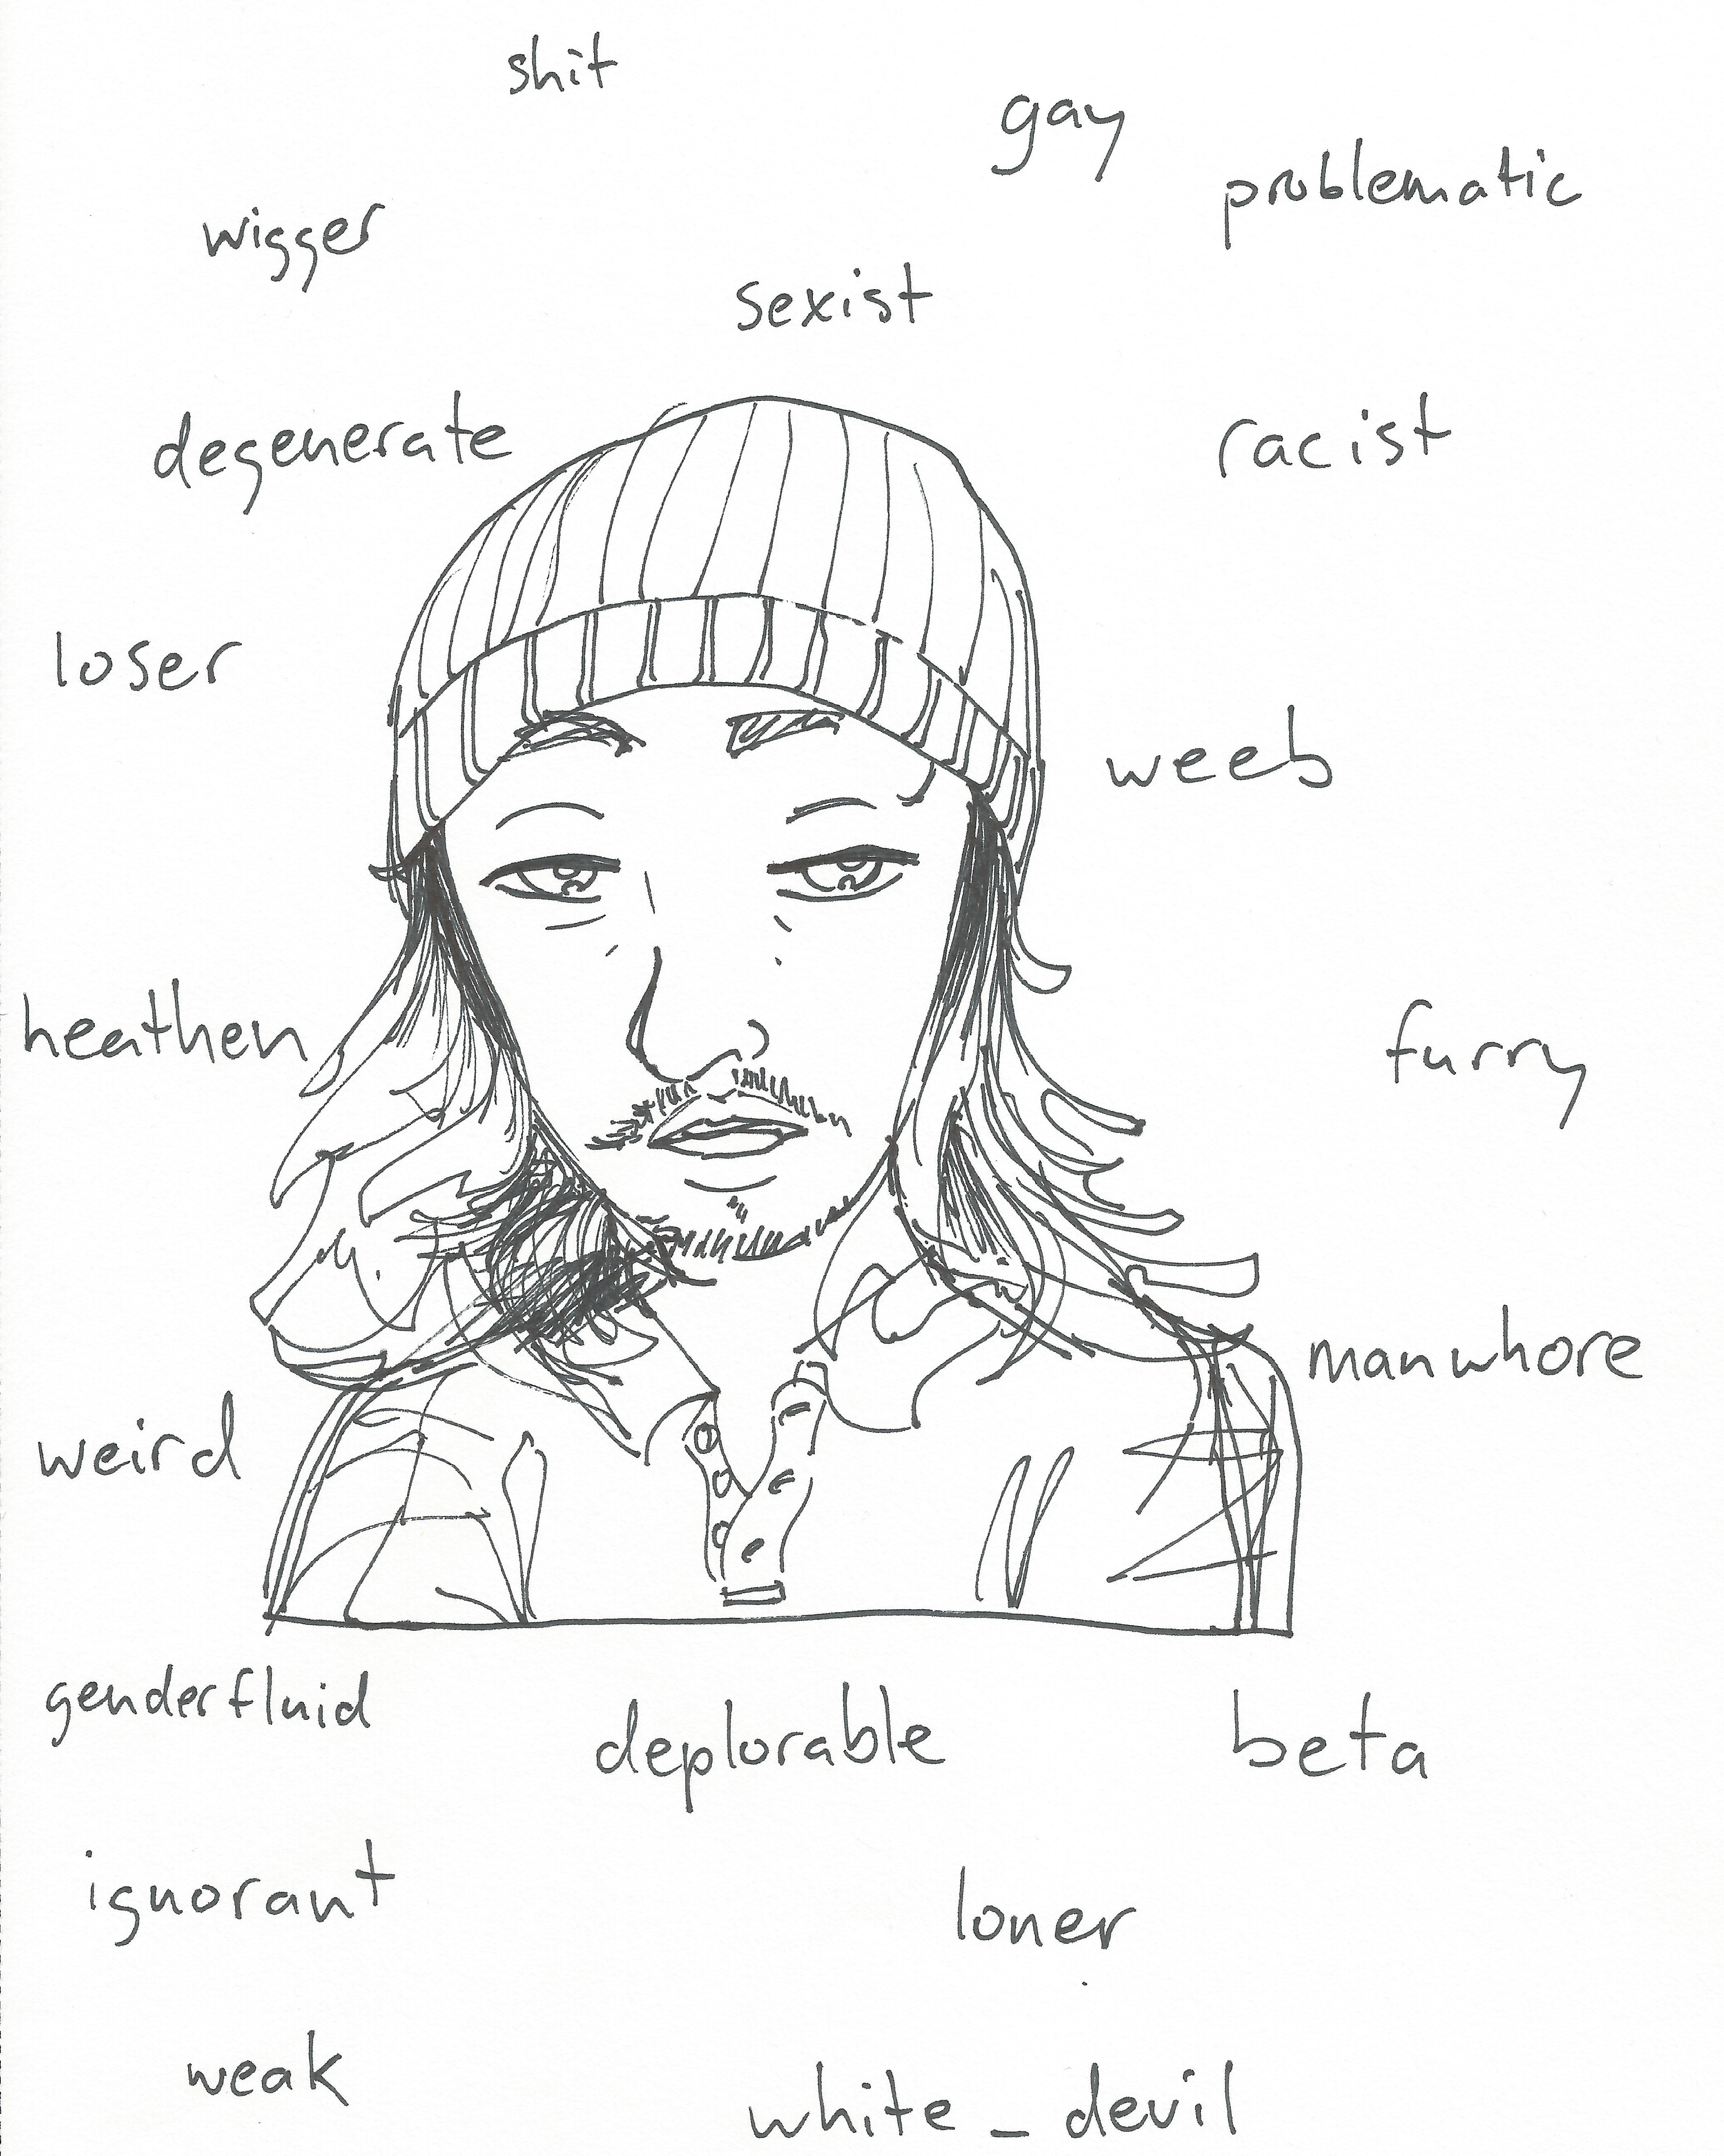 shit
gay
problematic
wigger
sexist
degenerate
racist
loser
weeb
heathen
furry
manwhore
weird
genderfluid
deplorable
beta
ignorant
loner
weak
white_devil